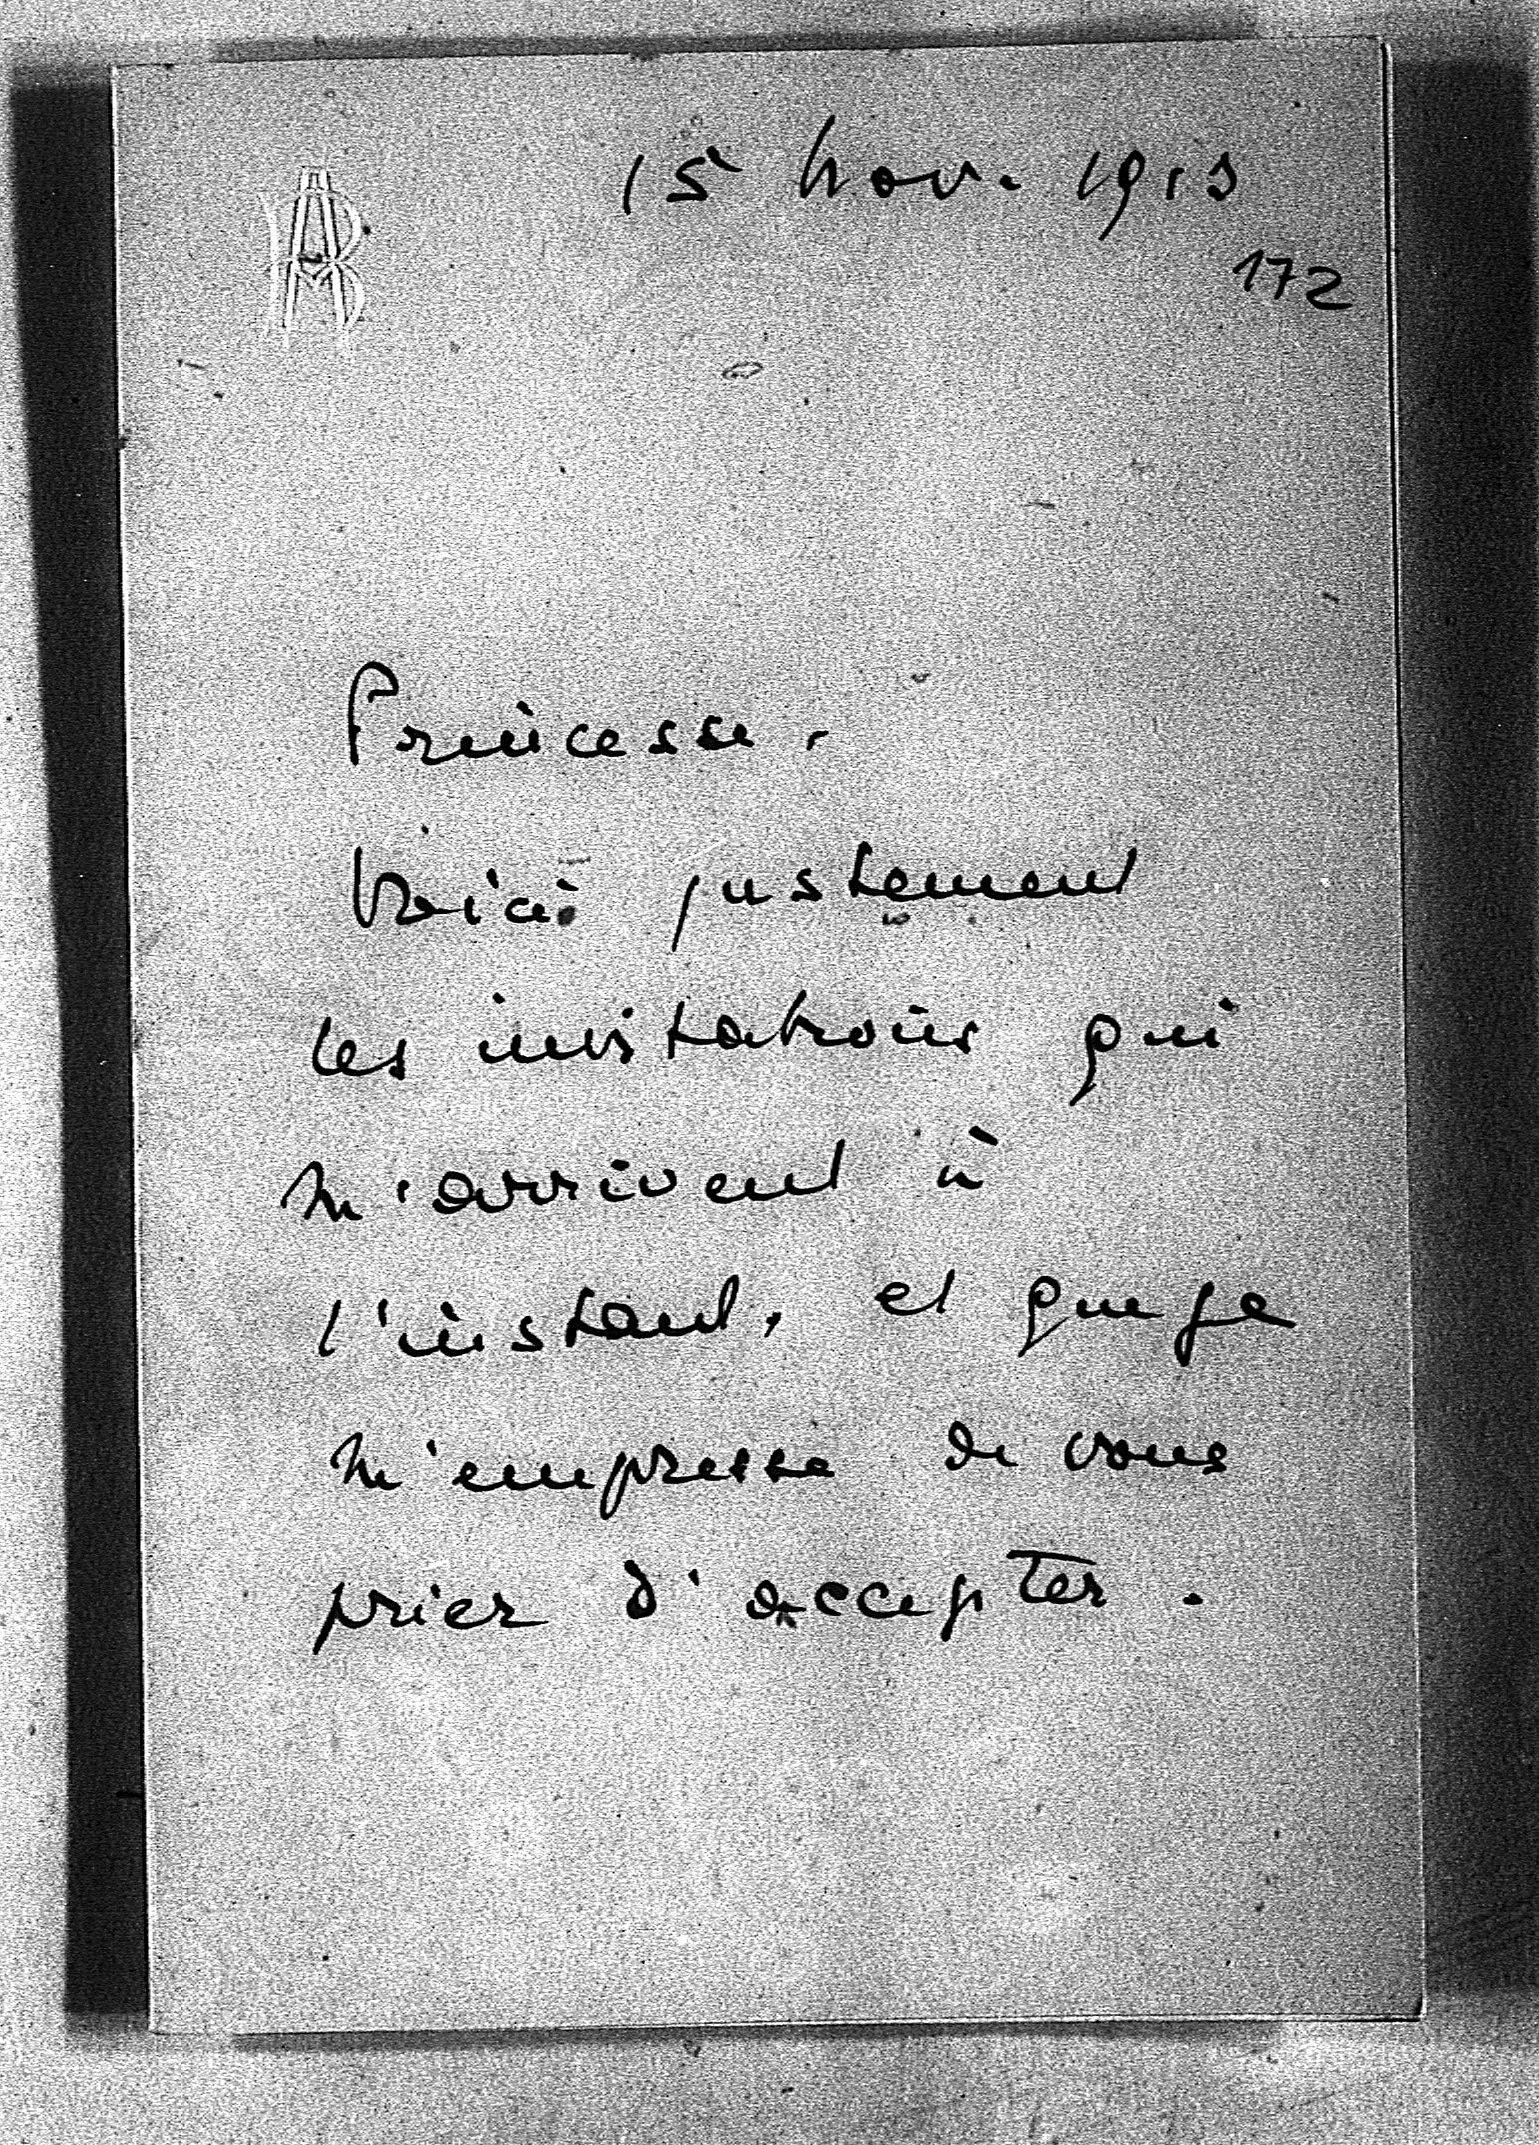 15 nov. 1913
172
Princesse.
Voici justement
les invitations qui
m'arrivent à
l'instant, et que je
m'empresse de vous
prier d'accepter.